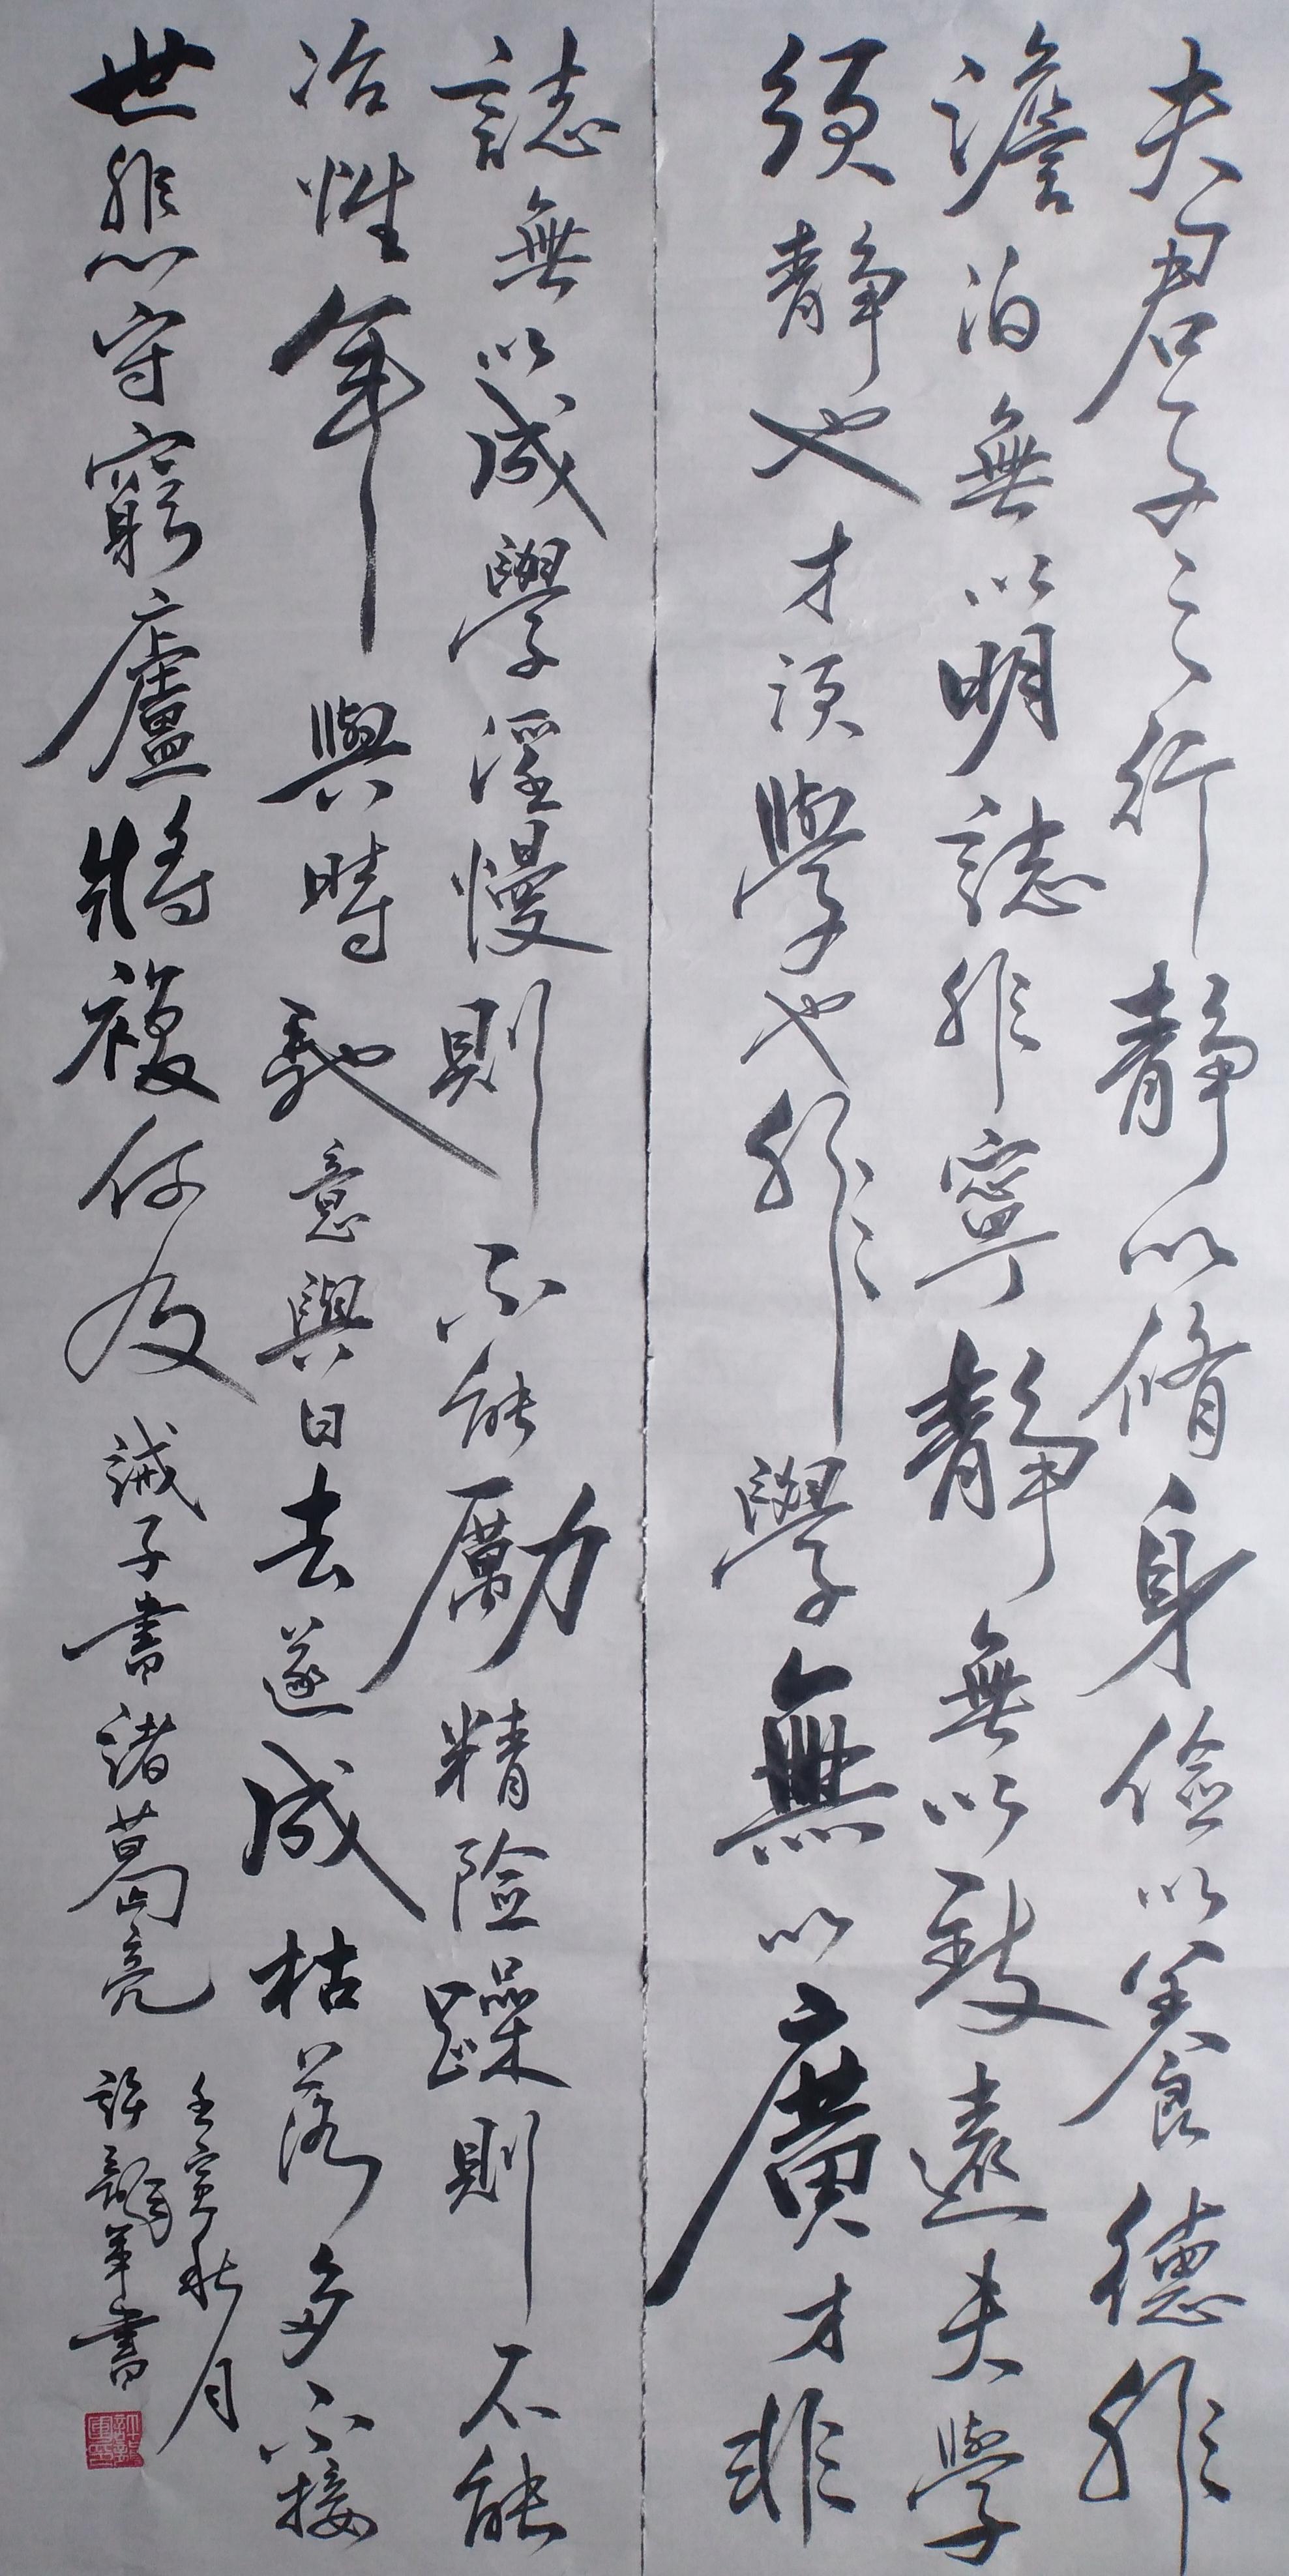 夫君子之行靜以脩身儉以養德非
澹泊無以明誌非寧靜無以致遠夫學
須靜也才須學也非學無以廣才非
誌無以成學淫慢則不能勵精險躁則不能
冶性年與時馳意與日去遂成枯落多不接
世悲守窮廬將複何及 誡子書 諸葛亮
壬寅秋月
許龍軍書